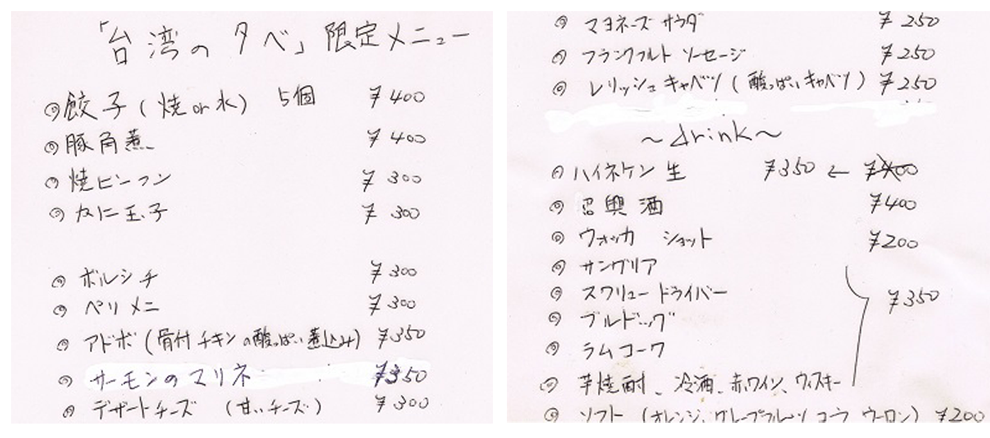 「台湾の夕べ」限定メニュー
◎餃子(焼or水) 5個 ¥400
◎豚角煮 ¥400
◎焼ビーフン ¥300
◎かに玉子 ¥300
◎ボルシチ ¥300
◎ペリメニ ¥300
◎アドボ(骨付チキンの酸っぱい煮込み) ¥350
◎サーモンのマリネ ¥350
◎デザートチーズ (甘いチーズ) ¥300
◎マヨネーズサラダ ¥250
◎フランクフルトソーセージ ¥250
◎レリッシュキャベツ(酸っぱいキャベツ) ¥250
～drink～
◎ハイネケン生 ¥350 ← ¥400
◎紹興酒 ¥400
◎ウォッカ ショット ¥200
◎サングリア
◎スクリュードライバー ¥350
◎ブルドッグ
◎ラムコーク
◎芋焼酎、冷酒、赤ワイン、ウィスキー
◎ソフト(オレンジ、グレープフルーツ コーラ ウーロン) ¥200